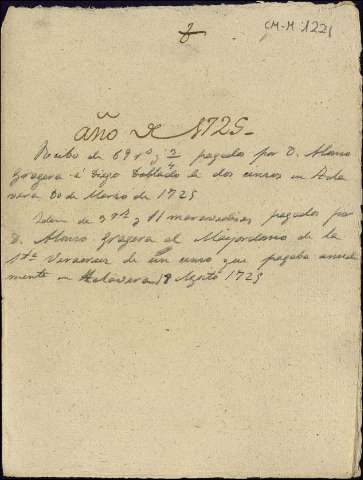 CM-M 1221
año de 1725-
Recibo de 69 rs y 2/4 pagados por D. Alonso
Gragera á Diego Doblado de dos censos en Tala
vera 20 de Marzo de 1725
Idem de 3 rs y 11 maravedises pagados por
D. Alonso Gragera al Mayordomo de la
Sta Veracruz de un censo que pagaba anual
mente en Talavera 19 Agosto 1725